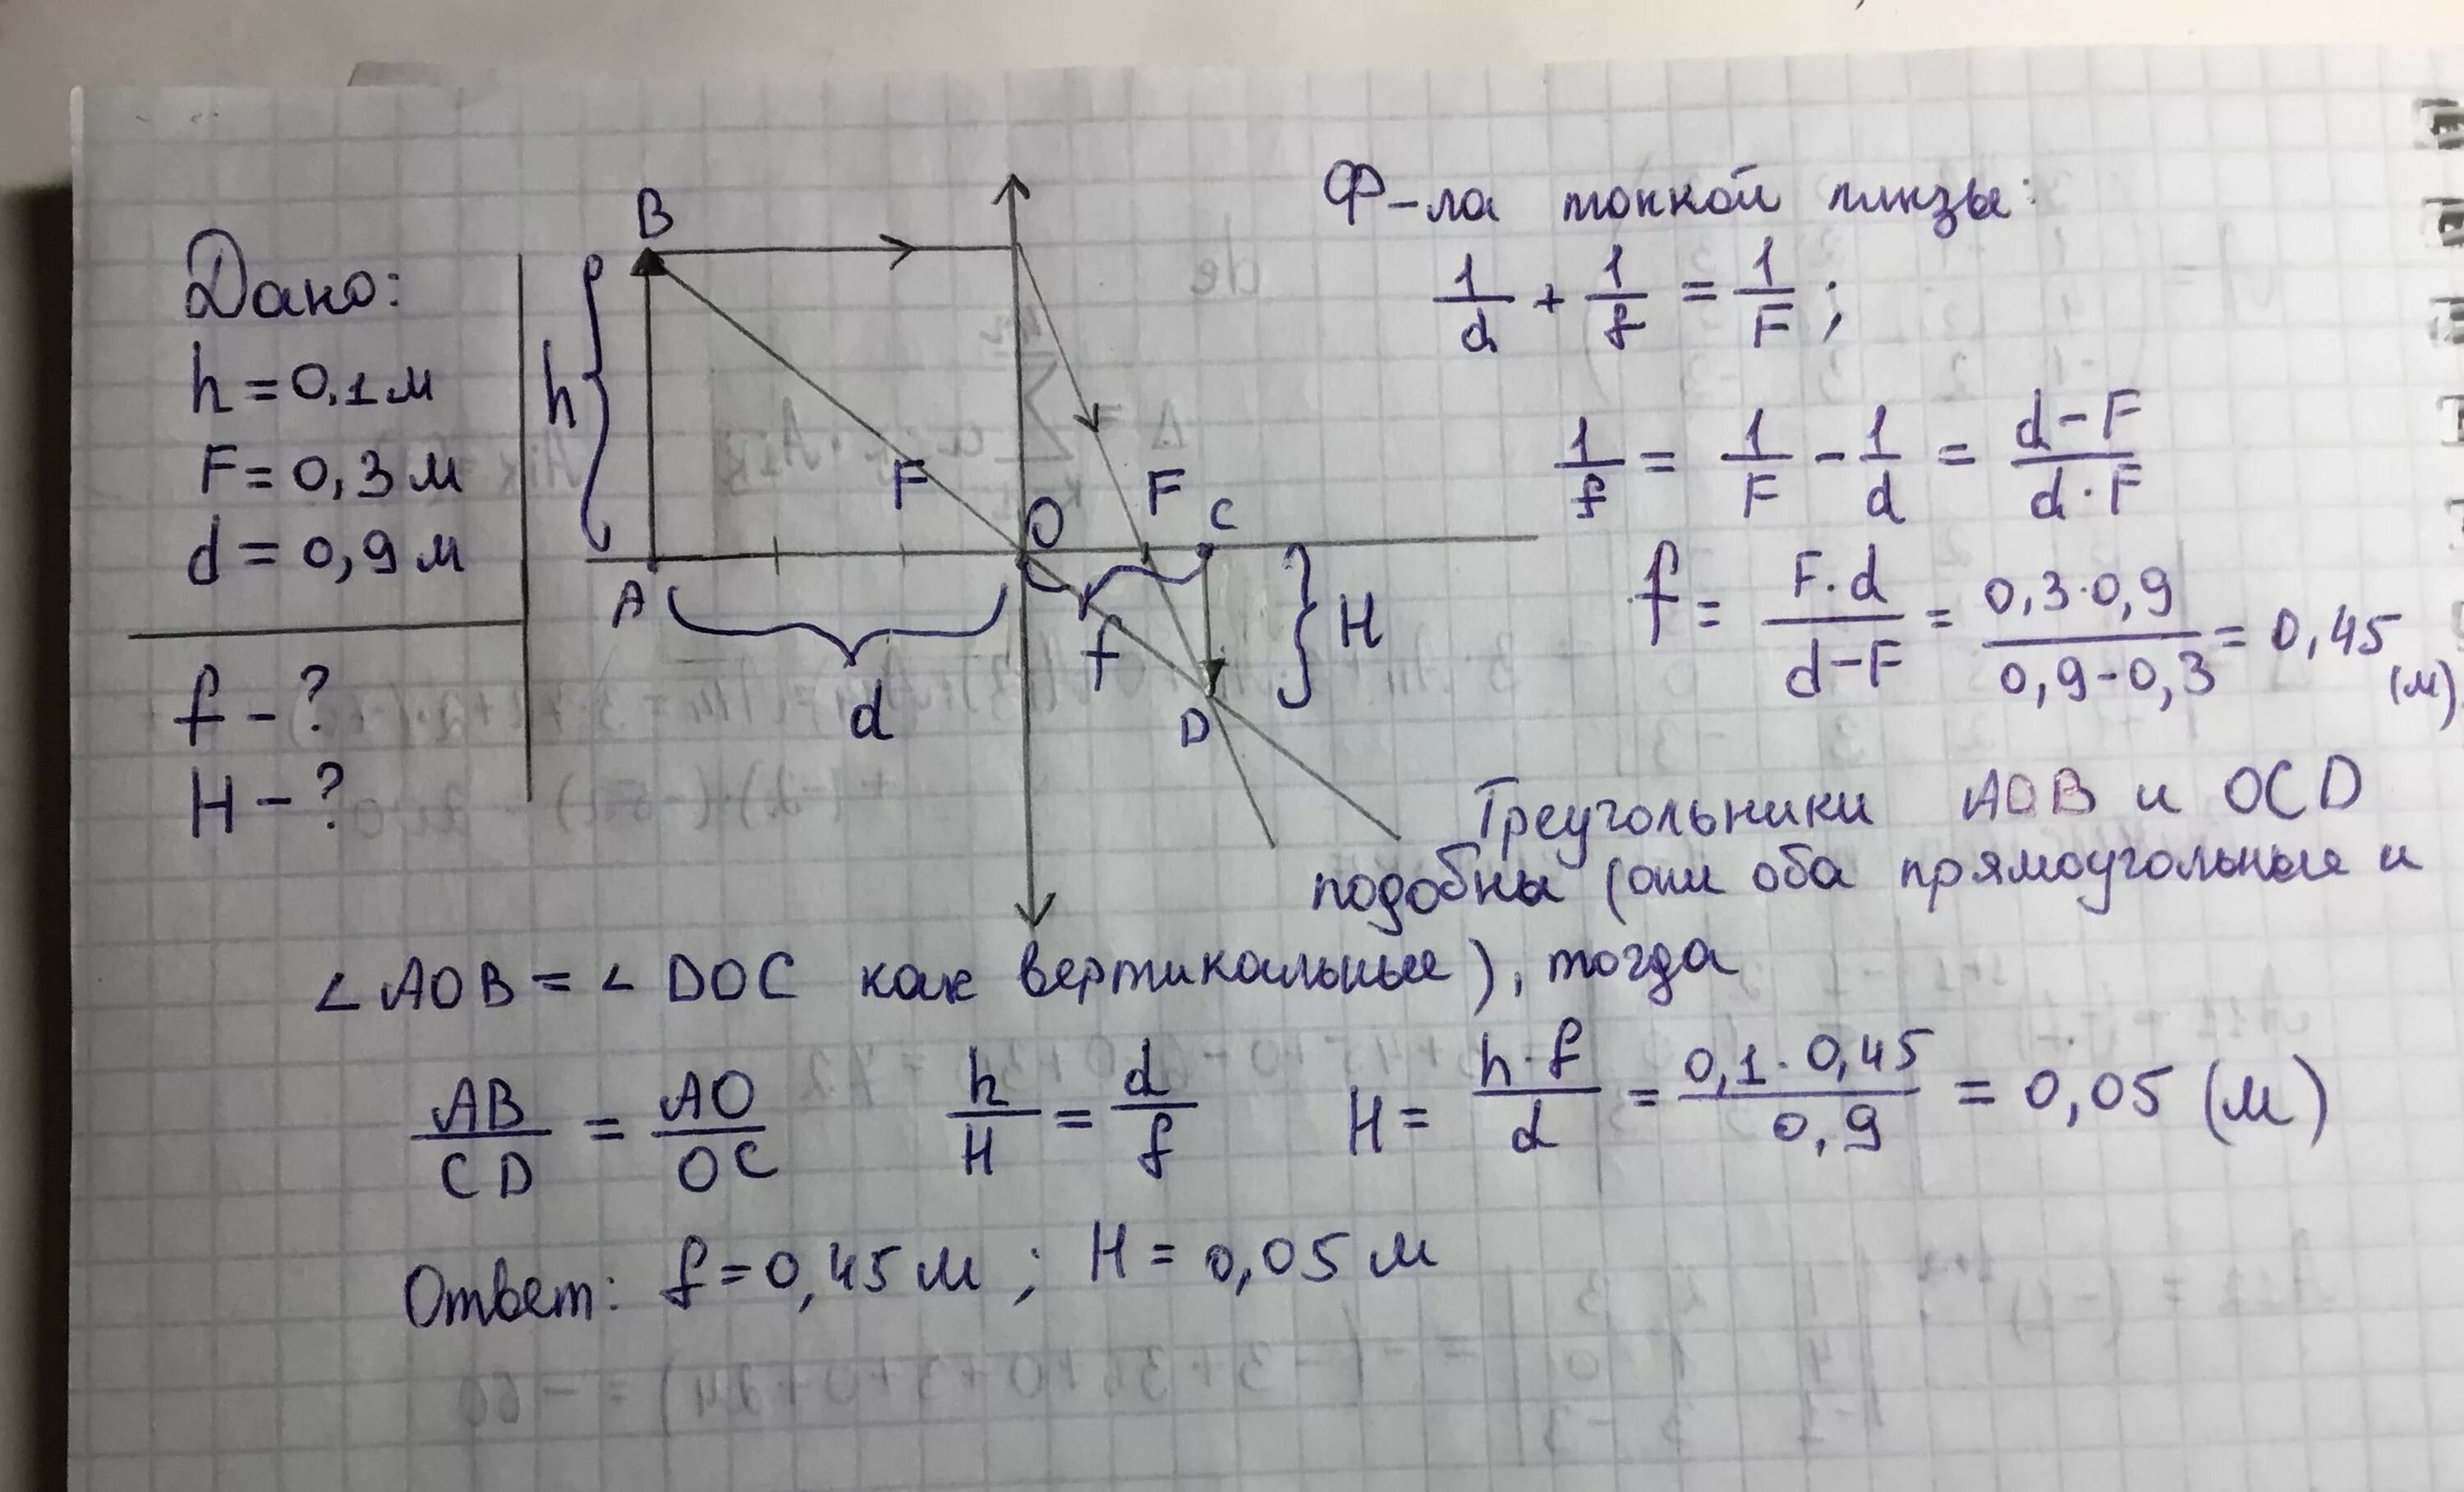 Дано:
h = 0,1 м
F = 0,3 м
d = 0,9 м
f - ?
H - ?
B
h
F
O
F
C
A
d
f
H
D
Ф-ла тонкой линзы:
1/d + 1/f = 1/F ;
1/f = 1/F - 1/d = d-F / d·F
f = F·d / d-F = 0,3·0,9 / 0,9-0,3 = 0,45 (м)
Треугольники AOB и OCD
подобны (они оба прямоугольные и
∠AOB = ∠DOC как вертикальные), тогда
AB/CD = AO/OC h/H = d/f H = h·f / d = 0,1·0,45 / 0,9 = 0,05 (м)
Ответ: f = 0,45 м ; H = 0,05 м